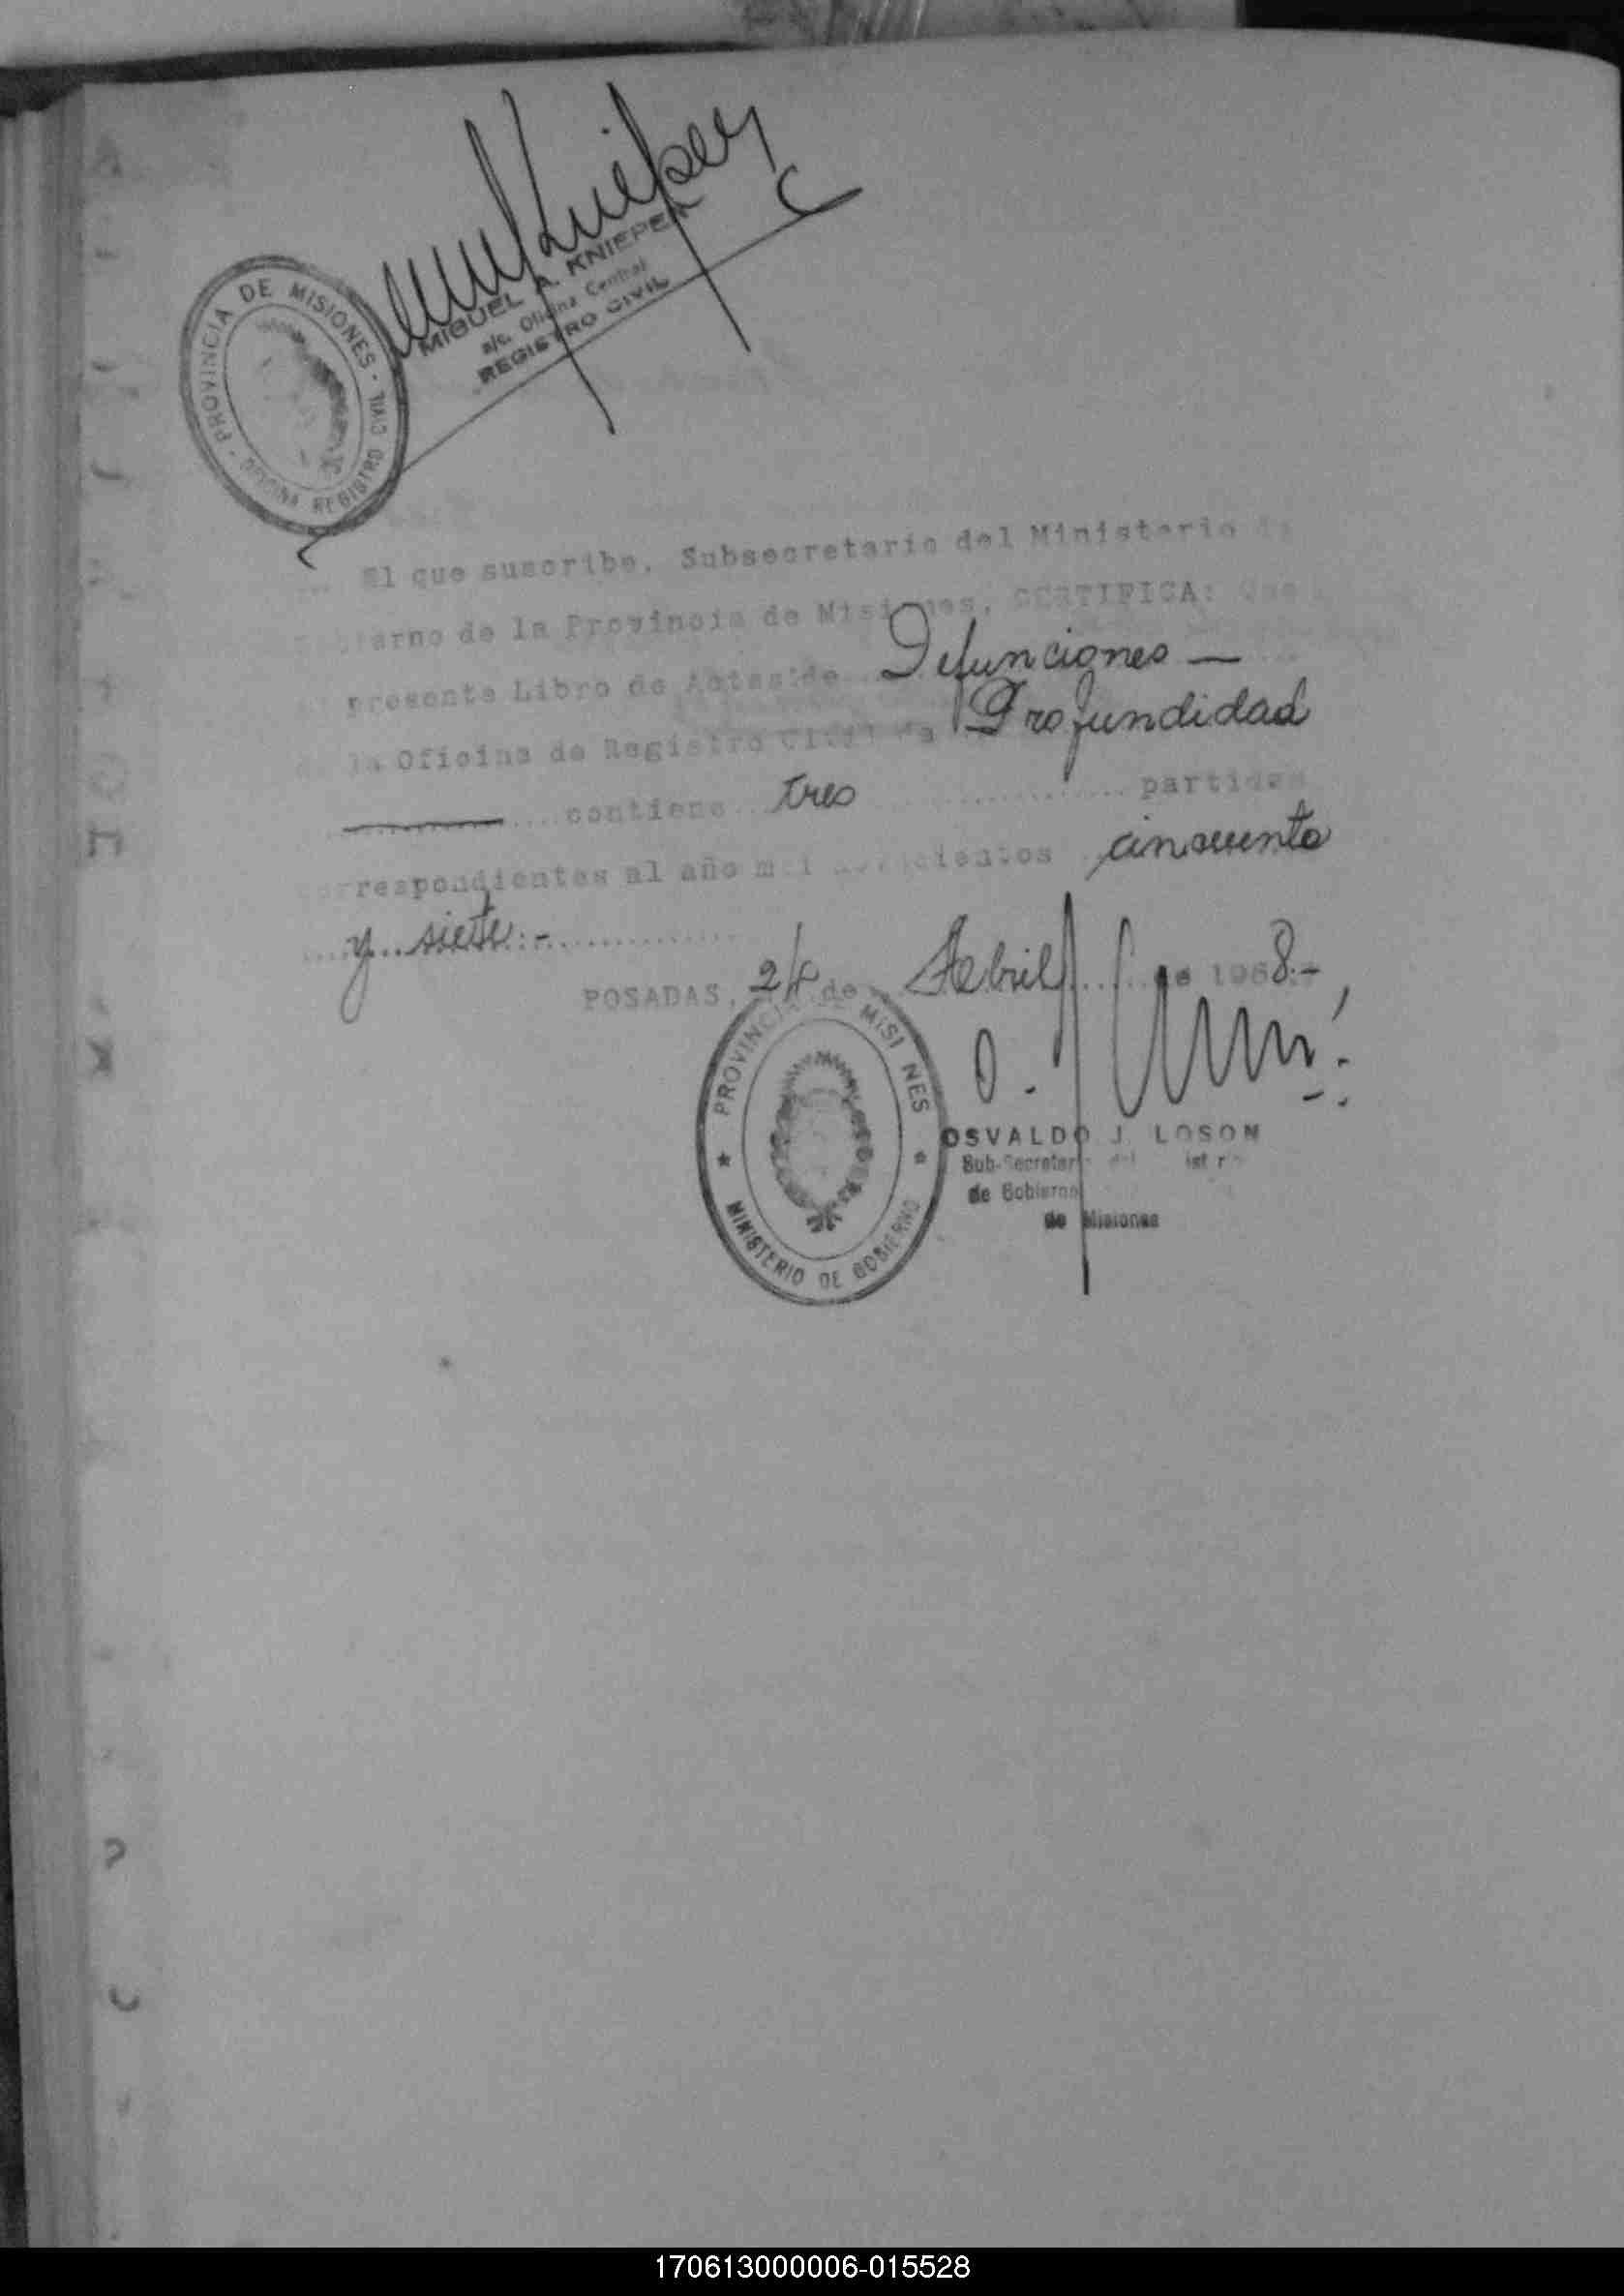 MIGUEL A. KNIEPER
a/c. Oficina Central
REGISTRO CIVIL
PROVINCIA DE MISIONES
OFICINA REGISTRO CIVIL
El que suscribe, Subsecretario del Ministerio de
Gobierno de la Provincia de Misiones, CERTIFICA: Que
el presente Libro de Actas de Defunciones —
de la Oficina de Registro Civil de Profundidad
contiene tres partidas
correspondientes al año mil novecientos cincuenta
y siete.-
POSADAS, 24 de Abril de 1968.-
PROVINCIA DE MISI NES
MINISTERIO DE GOBIERNO
OSVALDO J. LOSON
Sub-Secretario del
de Gobierno
de Misiones
170613000006-015528